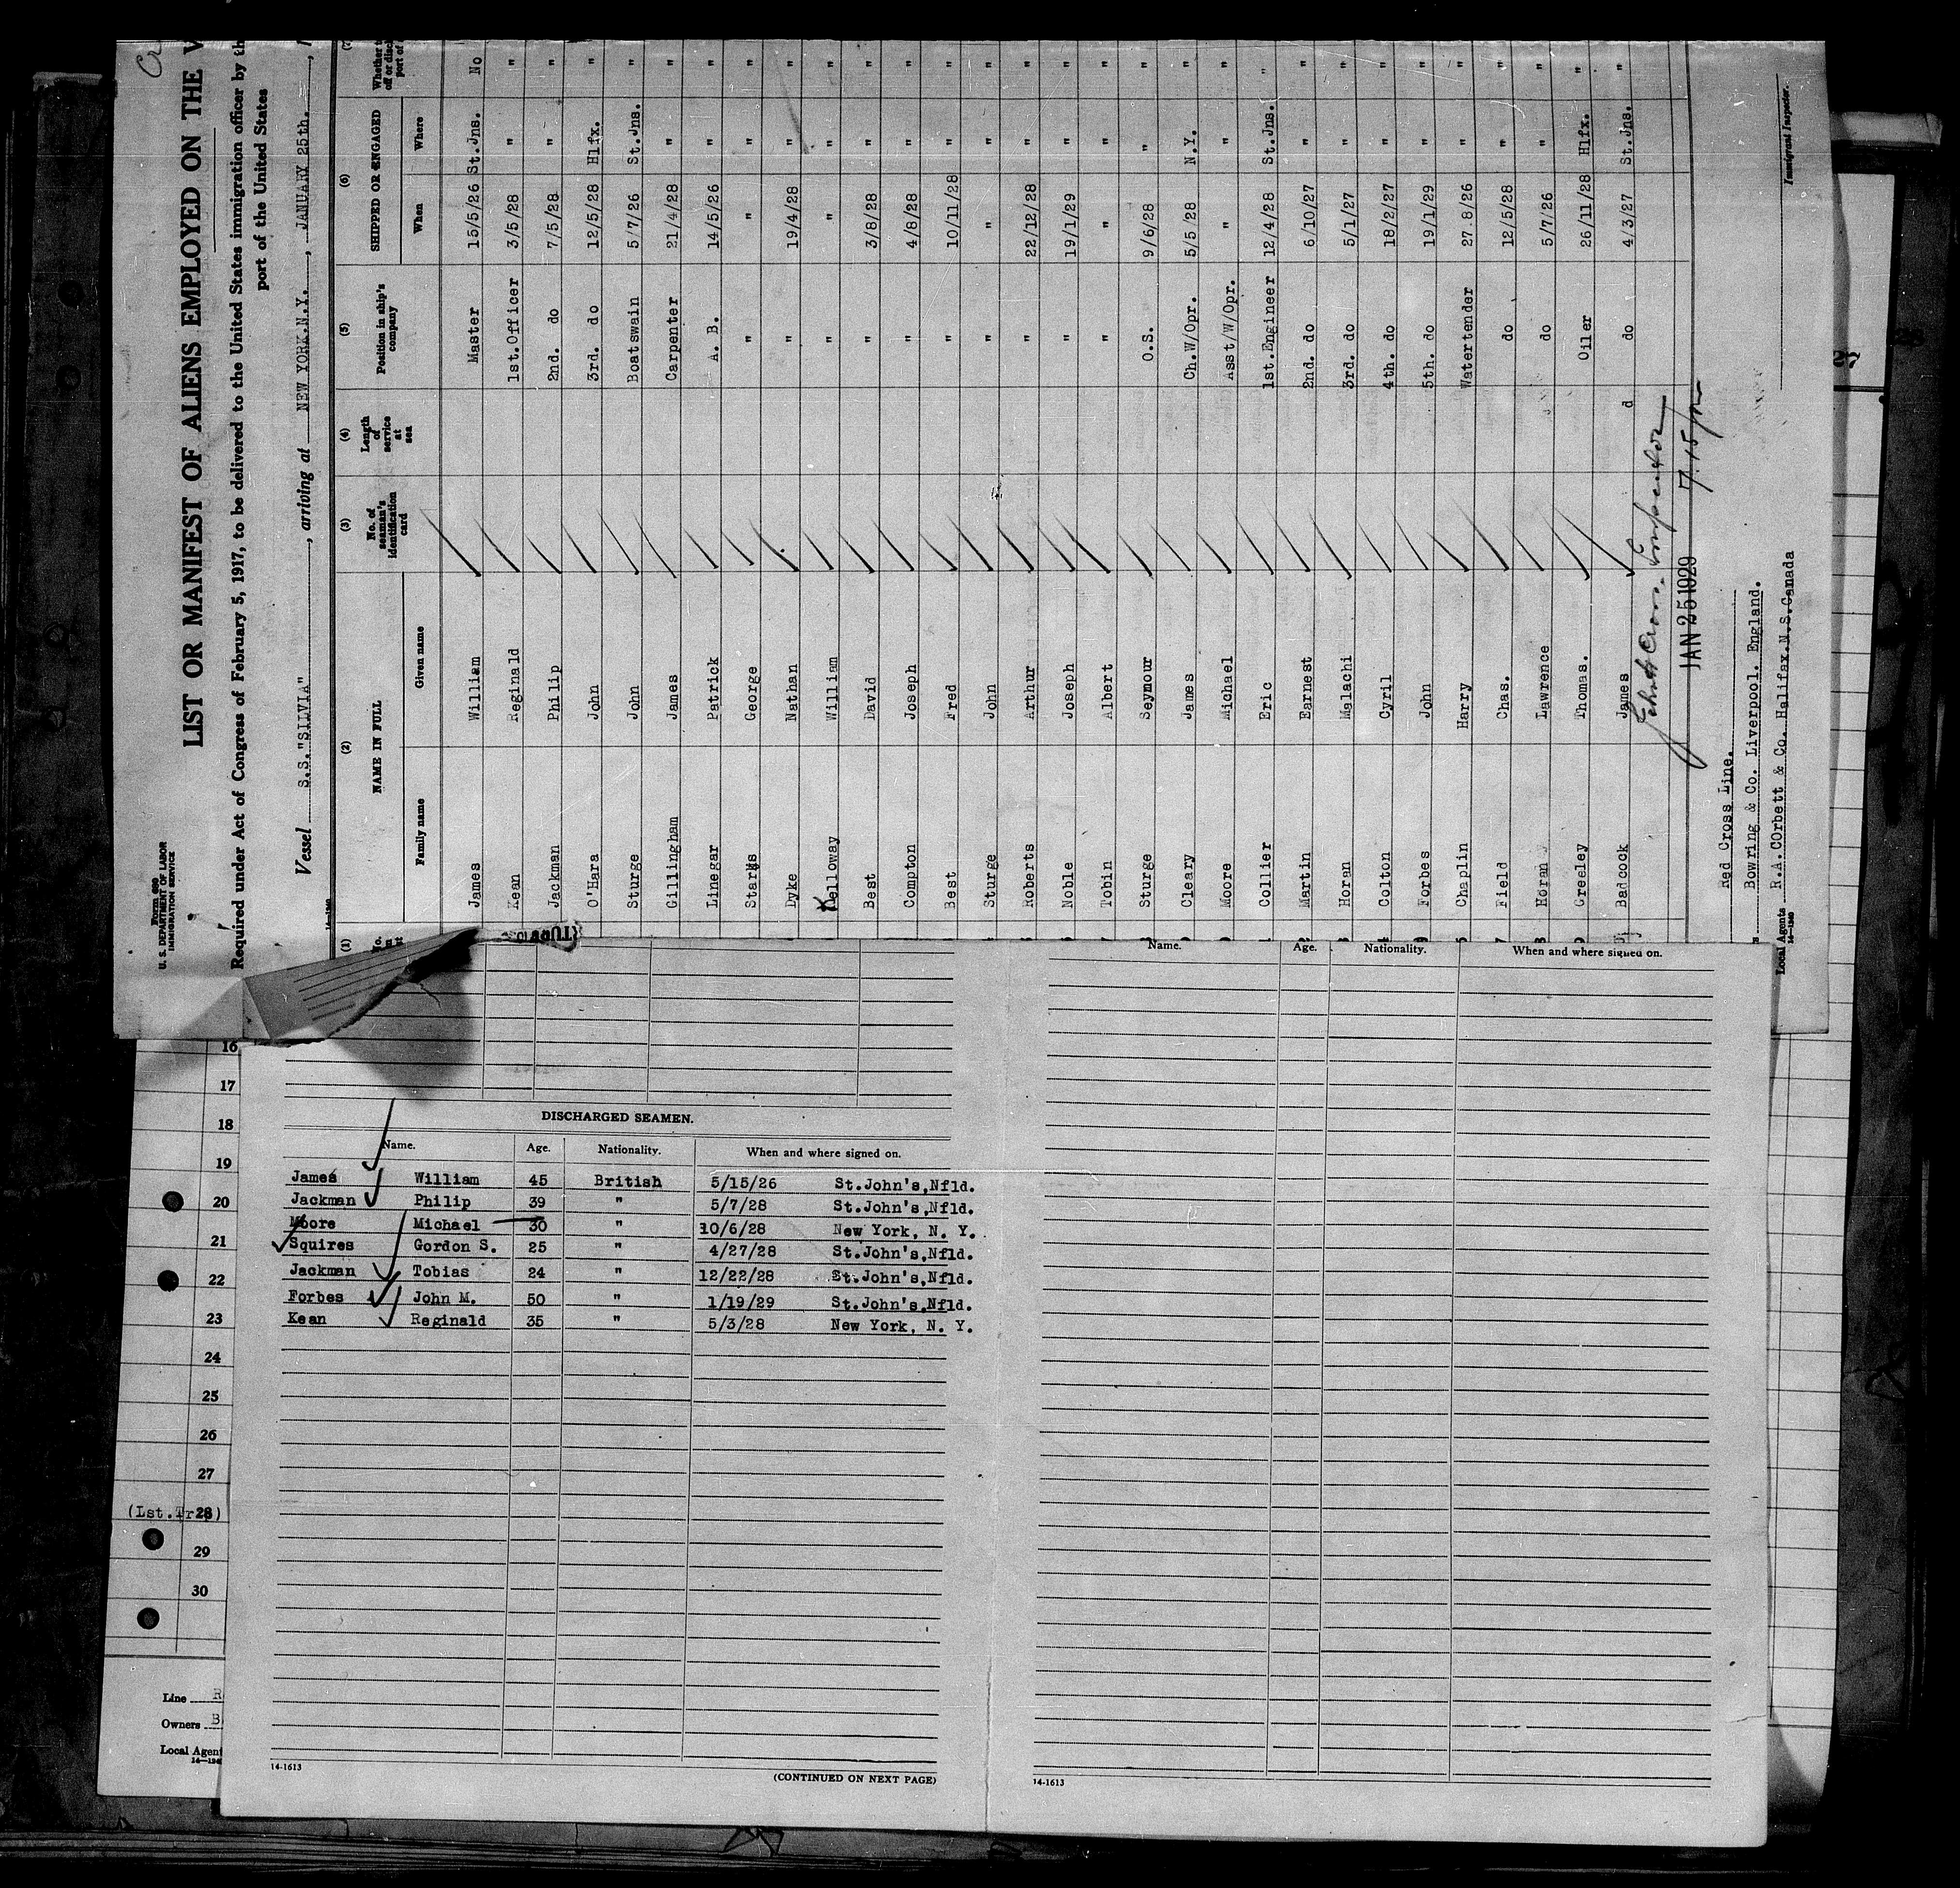 Form 680
U. S. DEPARTMENT OF LABOR
IMMIGRATION SERVICE
LIST OR MANIFEST OF ALIENS EMPLOYED ON THE
Required under Act of Congress of February 5, 1917, to be delivered to the United States immigration officer by th
port of the United States
Vessel S.S."SILVIA", arriving at NEW YORK.N.Y., JANUARY 25th.,
(1) (2) (3) (4) (5) (6) (7)
NAME IN FULL No. of seaman's identification card Length of service at sea Position in ship's company SHIPPED OR ENGAGED
Family name Given name When Where
James William Master 15/5/26 St.Jns. No
Kean Reginald 1st.Officer 3/5/28 " "
Jackman Philip 2nd. do 7/5/28 " "
O'Hara John 3rd. do 12/5/28 Hlfx. "
Sturge John Boatswain 5/7/26 St.Jns. "
Gillingham James Carpenter 21/4/28 " "
Linegar Patrick A. B. 14/5/26 " "
Starks George " " " "
Dyke Nathan " 19/4/28 " "
Kelloway William " " " "
Best David " 3/8/28 " "
Compton Joseph " 4/8/28 " "
Best Fred " 10/11/28 " "
Sturge John " " " "
Roberts Arthur " 22/12/28 " "
Noble Joseph " 19/1/29 " "
Tobin Albert " " " "
Sturge Seymour O.S. 9/6/28 " "
Cleary James Ch.W/Opr. 5/5/28 N.Y. "
Moore Michael Asst/W/Opr. " " "
Collier Eric 1st.Engineer 12/4/28 St.Jns. "
Martin Earnest 2nd. do 6/10/27 " "
Horan Malachi 3rd. do 5/1/27 " "
Colton Cyril 4th. do 18/2/27 " "
Forbes John 5th. do 19/1/29 " "
Chaplin Harry Watertender 27.8/26 " "
Field Chas. do 12/5/28 " "
Horan Lawrence do 5/7/26 " "
Greeley Thomas. Oiler 26/11/28 Hlfx. "
Badcock James d do 4/3/27 St.Jns. "
JAN 25 1929 7.15
Immigrant Inspector.
Red Cross Line.
Bowring & Co. Liverpool. England.
Local Agents R.A.COrbett & Co. Halifax.N.S.Canada
14-1240
Name. Age. Nationality. When and where signed on.
DISCHARGED SEAMEN.
Name. Age. Nationality. When and where signed on.
James William 45 British 5/15/26 St.John's,Nfld.
Jackman Philip 39 " 5/7/28 St.John's,Nfld.
Moore Michael 30 " 10/6/28 New York, N. Y.
Squires Gordon S. 25 " 4/27/28 St.John's,Nfld.
Jackman Tobias 24 " 12/22/28 St.John's,Nfld.
Forbes John M. 50 " 1/19/29 St.John's,Nfld.
Kean Reginald 35 " 5/3/28 New York, N. Y.
14-1613
(CONTINUED ON NEXT PAGE)
14-1613
16
17
18
19
20
21
22
23
24
25
26
27
(Lst.Tr 28)
29
30
Line R
Owners B
Local Agen